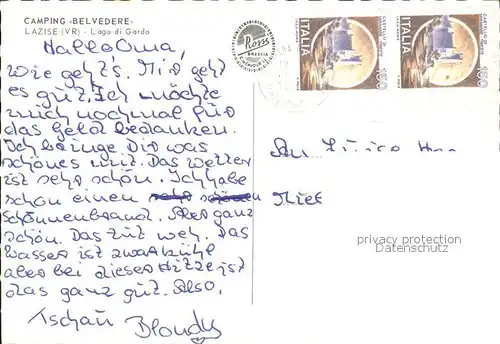 CAMPING «BELVEDERE»
LAZISE (VR) - Lago di Garda
Hallo Oma,
Wie geht's. Mir geht
es gut. Ich möchte
mich nochmal für
das Geld bedanken.
Ich bringe Dir was
schönes mit. Das Wetter
ist sehr schön. Ich habe
schon einen sehr schönen
Schönnenbrand. Aber ganz
schön. Das tut weh. Das
Wasser ist zwar kühl
aber bei dieser Hitze ist
das ganz gut. Also,
Tschau Blondy
Roni
BRESCIA
ITALIA 180
CASTELLO DI MIRAMARE
ITALIA 180
CASTELLO DI MIRAMARE
privacy protection
Datenschutz